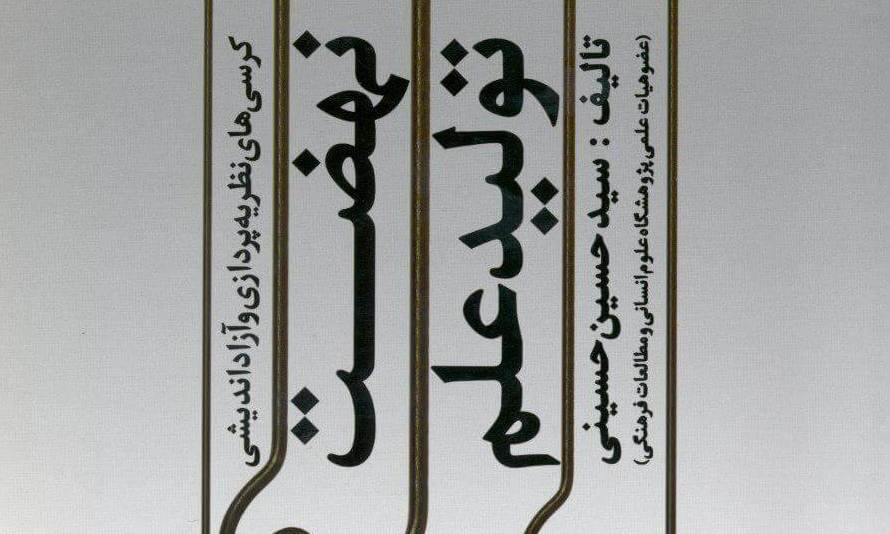 کرسی‌های نظریه‌پردازی و آزاداندیشی
نهضت
تولید علم
تالیف : سید حسین حسینی
(عضو هیات علمی پژوهشگاه علوم انسانی و مطالعات فرهنگی)